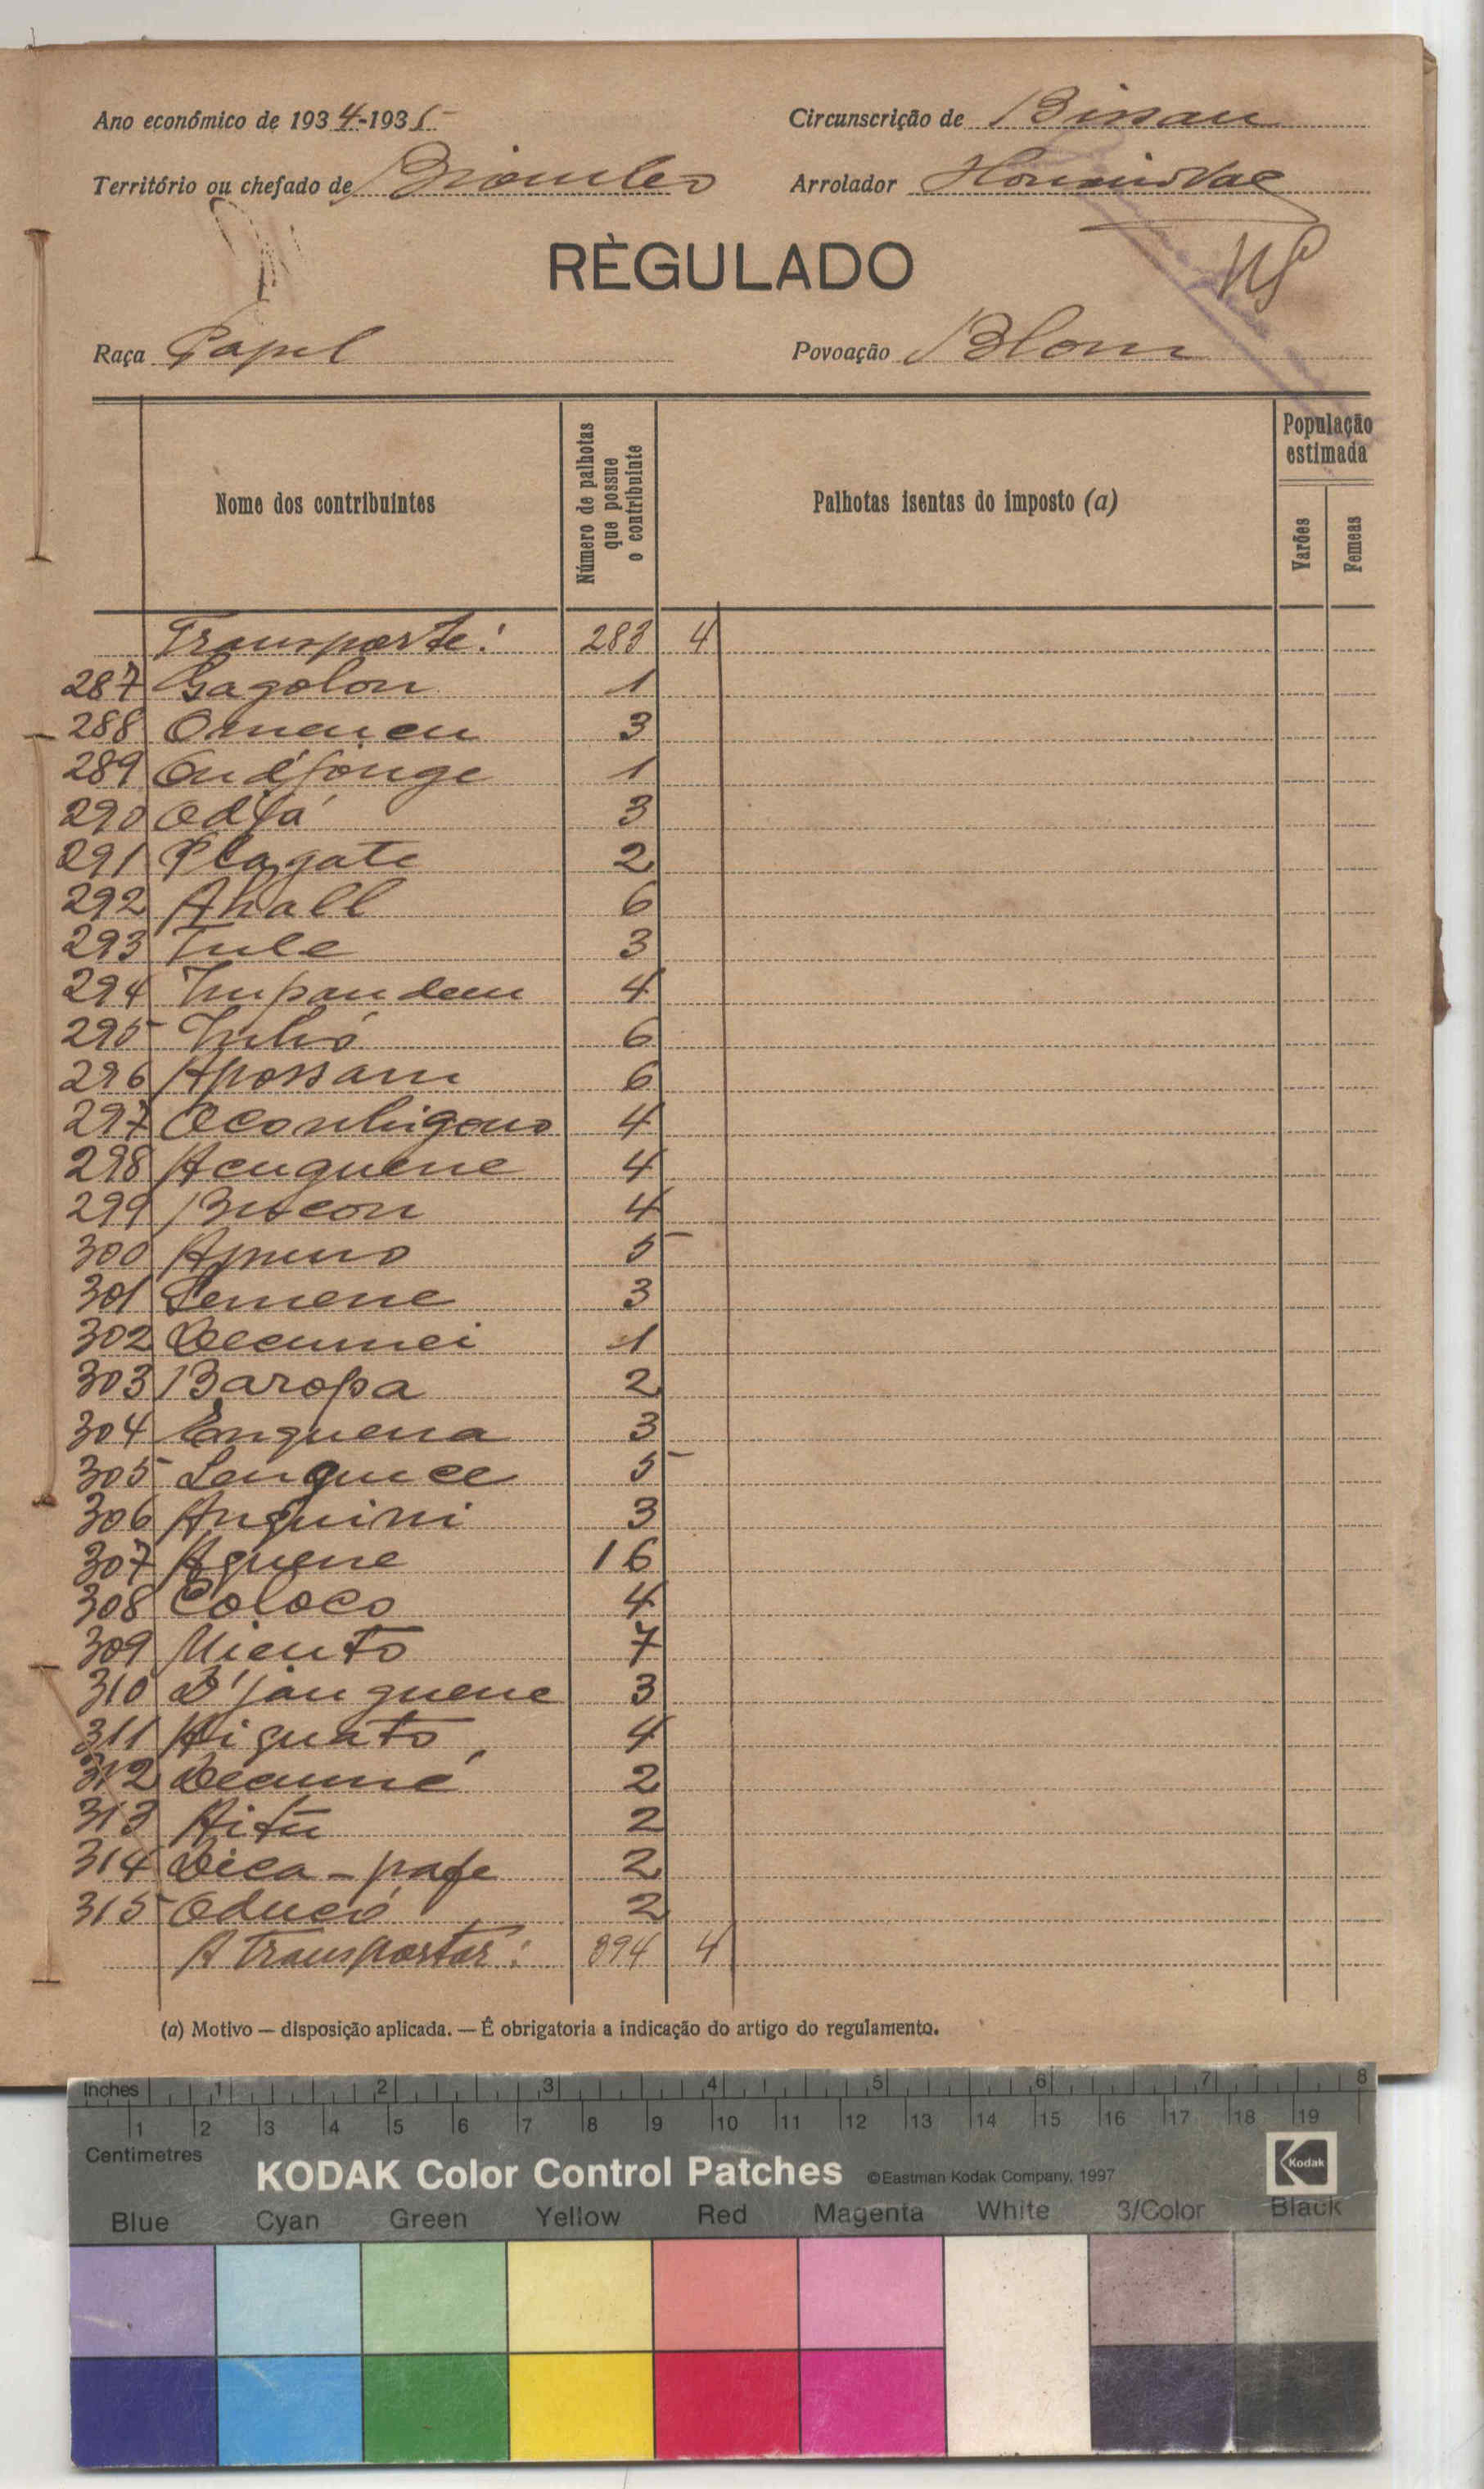 Ano económico de 1934-1935
Circunscrição de Bissau
Território ou chefado de Biombo
Arrolador
RÈGULADO
Raça Papel
Povoação Blom
Nome dos contribuintes
Número de palhotas que possue o contribuinte
Palhotas isentas do imposto (a)
População estimada
Varões
Femeas
Transporte: 283 4
287 Gagolon 1
288 3
289 Ondjonge 1
290 Odjá 3
291 Plagate 2
292 6
293 Tule 3
294 Impandem 4
295 6
296 Apossam 6
297 4
298 4
299 4
300 5
301 Semene 3
302 1
303 Baropa 2
304 Enguena 3
305 5
306 Anguini 3
307 Aguene 16
308 Coloco 4
309 7
310 D'janguene 3
311 Aiguato 4
312 2
313 2
314 2
315 2
A transportar: 394 4
(a) Motivo — disposição aplicada. — É obrigatoria a indicação do artigo do regulamento.
Inches 1 2 3 4 5 6 7 8
1 2 3 4 5 6 7 8 9 10 11 12 13 14 15 16 17 18 19
Centimetres
KODAK Color Control Patches ©Eastman Kodak Company, 1997 Kodak
Blue Cyan Green Yellow Red Magenta White 3/Color Black